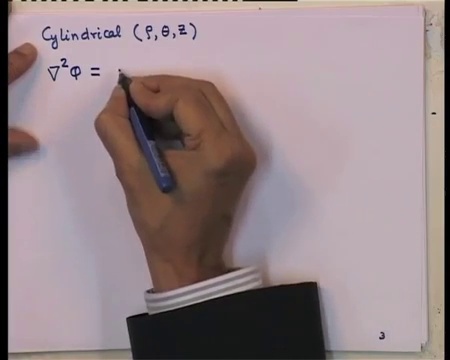 Cylindrical (ρ, θ, Z)
∇²φ =
3